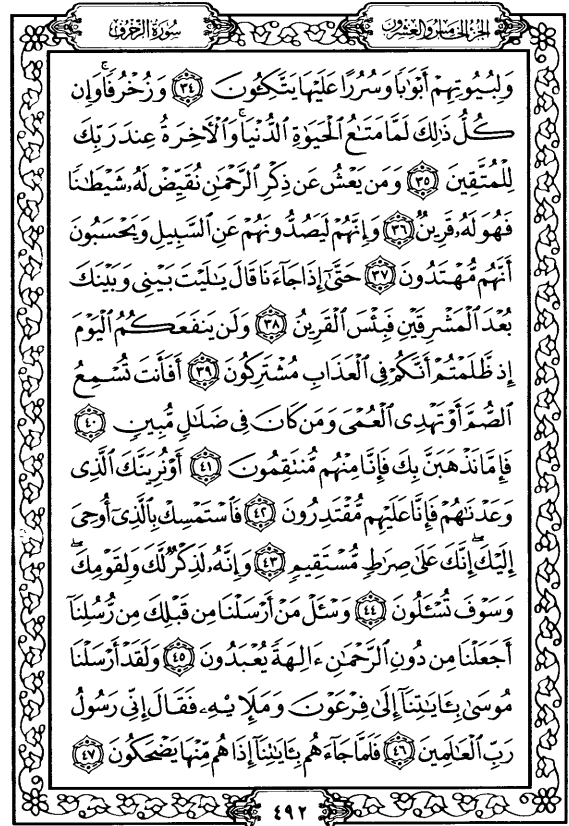 سُورَةُ الزُّخْرُفِ
الجُزْءُ الخَامِسُ وَالعِشْرُونَ
وَلِبُيُوتِهِمْ أَبْوَٰبًا وَسُرُرًا عَلَيْهَا يَتَّكِـُٔونَ ﴿٣٤﴾ وَزُخْرُفًا ۚ وَإِن
كُلُّ ذَٰلِكَ لَمَّا مَتَـٰعُ الْحَيَوٰةِ الدُّنْيَا ۚ وَالْـَٔاخِرَةُ عِندَ رَبِّكَ
لِلْمُتَّقِينَ ﴿٣٥﴾ وَمَن يَعْشُ عَن ذِكْرِ الرَّحْمَـٰنِ نُقَيِّضْ لَهُۥ شَيْطَـٰنًا
فَهُوَ لَهُۥ قَرِينٌ ﴿٣٦﴾ وَإِنَّهُمْ لَيَصُدُّونَهُمْ عَنِ السَّبِيلِ وَيَحْسَبُونَ
أَنَّهُم مُّهْتَدُونَ ﴿٣٧﴾ حَتَّىٰٓ إِذَا جَآءَنَا قَالَ يَـٰلَيْتَ بَيْنِى وَبَيْنَكَ
بُعْدَ الْمَشْرِقَيْنِ فَبِئْسَ الْقَرِينُ ﴿٣٨﴾ وَلَن يَنفَعَكُمُ الْيَوْمَ
إِذ ظَّلَمْتُمْ أَنَّكُمْ فِى الْعَذَابِ مُشْتَرِكُونَ ﴿٣٩﴾ أَفَأَنتَ تُسْمِعُ
الصُّمَّ أَوْ تَهْدِى الْعُمْىَ وَمَن كَانَ فِى ضَلَـٰلٍ مُّبِينٍ ﴿٤٠﴾
فَإِمَّا نَذْهَبَنَّ بِكَ فَإِنَّا مِنْهُم مُّنتَقِمُونَ ﴿٤١﴾ أَوْ نُرِيَنَّكَ الَّذِى
وَعَدْنَـٰهُمْ فَإِنَّا عَلَيْهِم مُّقْتَدِرُونَ ﴿٤٢﴾ فَاسْتَمْسِكْ بِالَّذِىٓ أُوحِىَ
إِلَيْكَ ۖ إِنَّكَ عَلَىٰ صِرَٰطٍ مُّسْتَقِيمٍ ﴿٤٣﴾ وَإِنَّهُۥ لَذِكْرٌ لَّكَ وَلِقَوْمِكَ ۖ
وَسَوْفَ تُسْـَٔلُونَ ﴿٤٤﴾ وَسْـَٔلْ مَنْ أَرْسَلْنَا مِن قَبْلِكَ مِن رُّسُلِنَآ
أَجَعَلْنَا مِن دُونِ الرَّحْمَـٰنِ ءَالِهَةً يُعْبَدُونَ ﴿٤٥﴾ وَلَقَدْ أَرْسَلْنَا
مُوسَىٰ بِـَٔايَـٰتِنَآ إِلَىٰ فِرْعَوْنَ وَمَلَإِيْهِۦ فَقَالَ إِنِّى رَسُولُ
رَبِّ الْعَـٰلَمِينَ ﴿٤٦﴾ فَلَمَّا جَآءَهُم بِـَٔايَـٰتِنَآ إِذَا هُم مِّنْهَا يَضْحَكُونَ ﴿٤٧﴾
٤٩٢